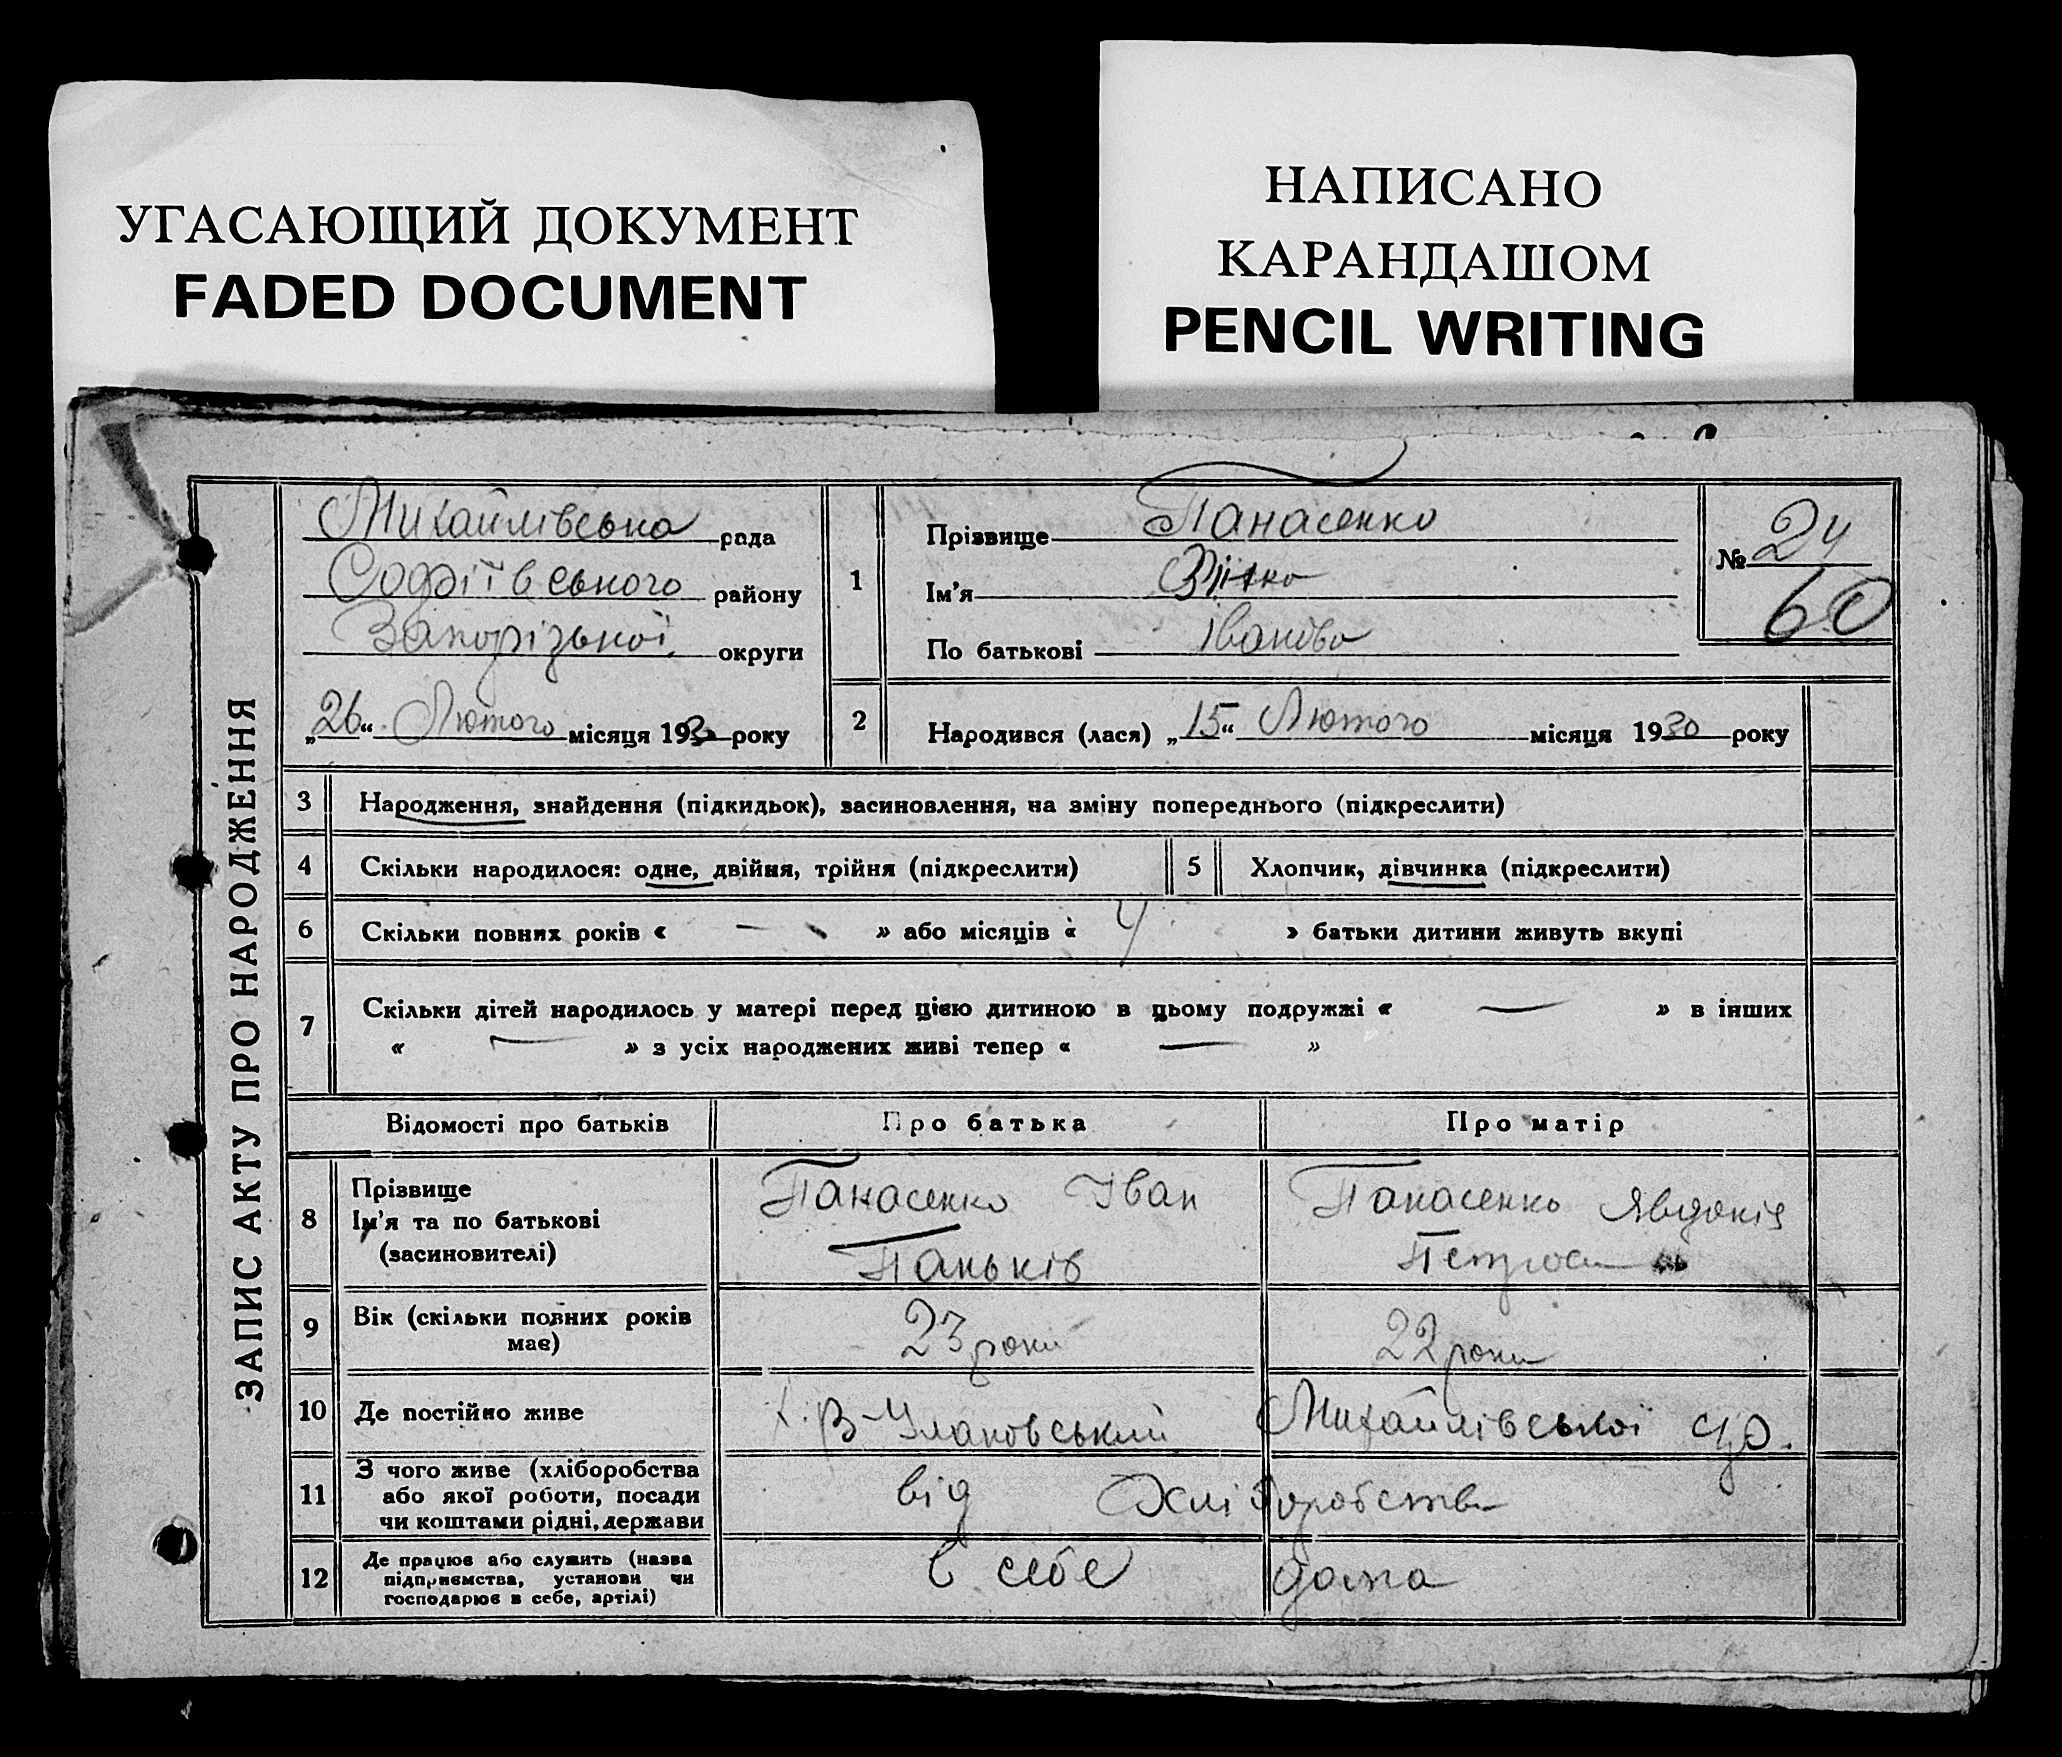 УГАСАЮЩИЙ ДОКУМЕНТ
FADED DOCUMENT
НАПИСАНО
КАРАНДАШОМ
PENCIL WRITING
ЗАПИС АКТУ ПРО НАРОДЖЕННЯ
Михайлівська рада
Софіївського району
Запорізької округи
„26“ Лютого місяця 1930 року
1
Прізвище Панасенко
Ім'я
По батькові Іванівн
№ 24
60
2 Народився (лася) „15“ Лютого місяця 1930 року
3 Народження, знайдення (підкидьок), засиновлення, на зміну попереднього (підкреслити)
4 Скільки народилося: одне, двійня, трійня (підкреслити) 5 Хлопчик, дівчинка (підкреслити)
6 Скільки повних років « — » або місяців « 4 » батьки дитини живуть вкупі
7 Скільки дітей народилось у матері перед цією дитиною в цьому подружжі « — » в інших
« — » з усіх народжених живі тепер « — »
Відомості про батьків Про батька Про матір
8 Прізвище
Ім'я та по батькові
(засиновителі)
Панасенко Іван
Паньків
Панасенко Явдокія
9 Вік (скільки повних років
має)
23 роки
22 роки
10 Де постійно живе Михайлівської с/р.
11 З чого живе (хліборобства
або якої роботи, посади
чи коштами рідні, держави
від Хліборобства
12 Де працює або служить (назва
підприємства, установи чи
господарює в себе, артілі)
в себе дома